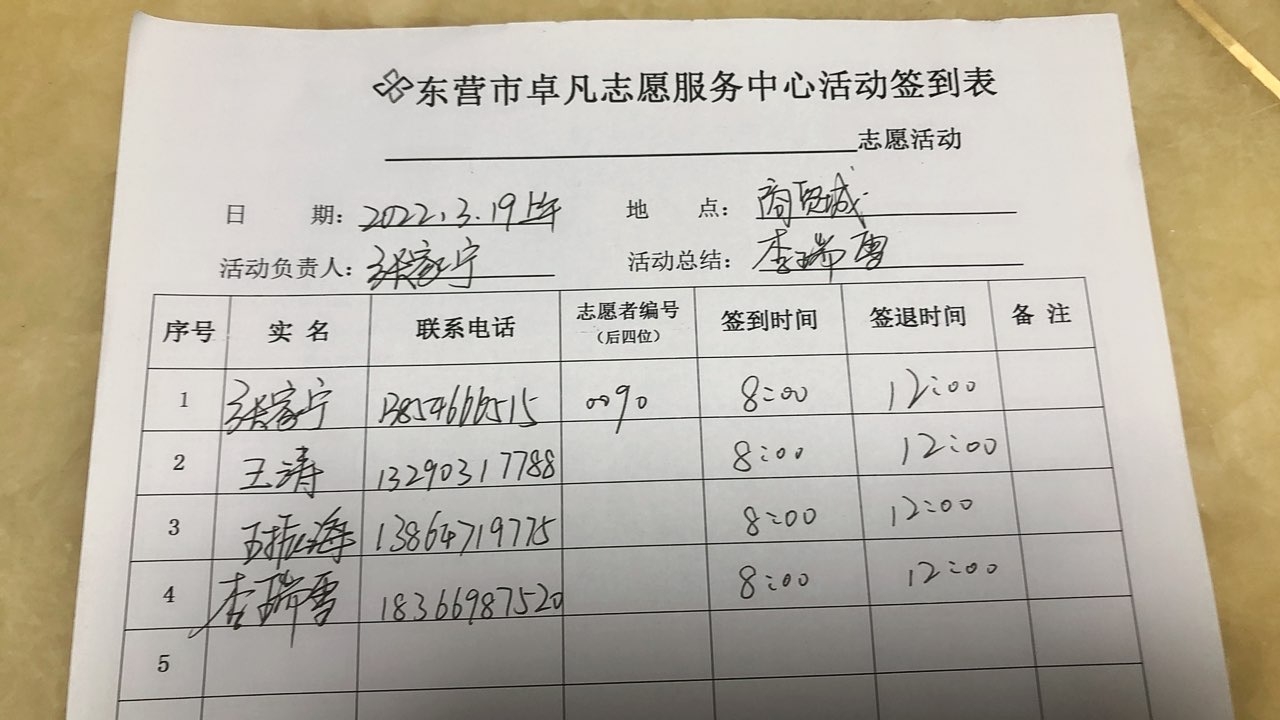 东营市卓凡志愿服务中心活动签到表
志愿活动
日 期: 2022.3.19上午 地 点: 商贸城
活动负责人: 张家宁 活动总结: 李瑞雪
序号 实名 联系电话 志愿者编号 (后四位) 签到时间 签退时间 备注
1 张家宁 13854666515 0090 8:00 12:00
2 王涛 13290317788 8:00 12:00
3 王振海 13864719775 8:00 12:00
4 李瑞雪 18366987520 8:00 12:00
5